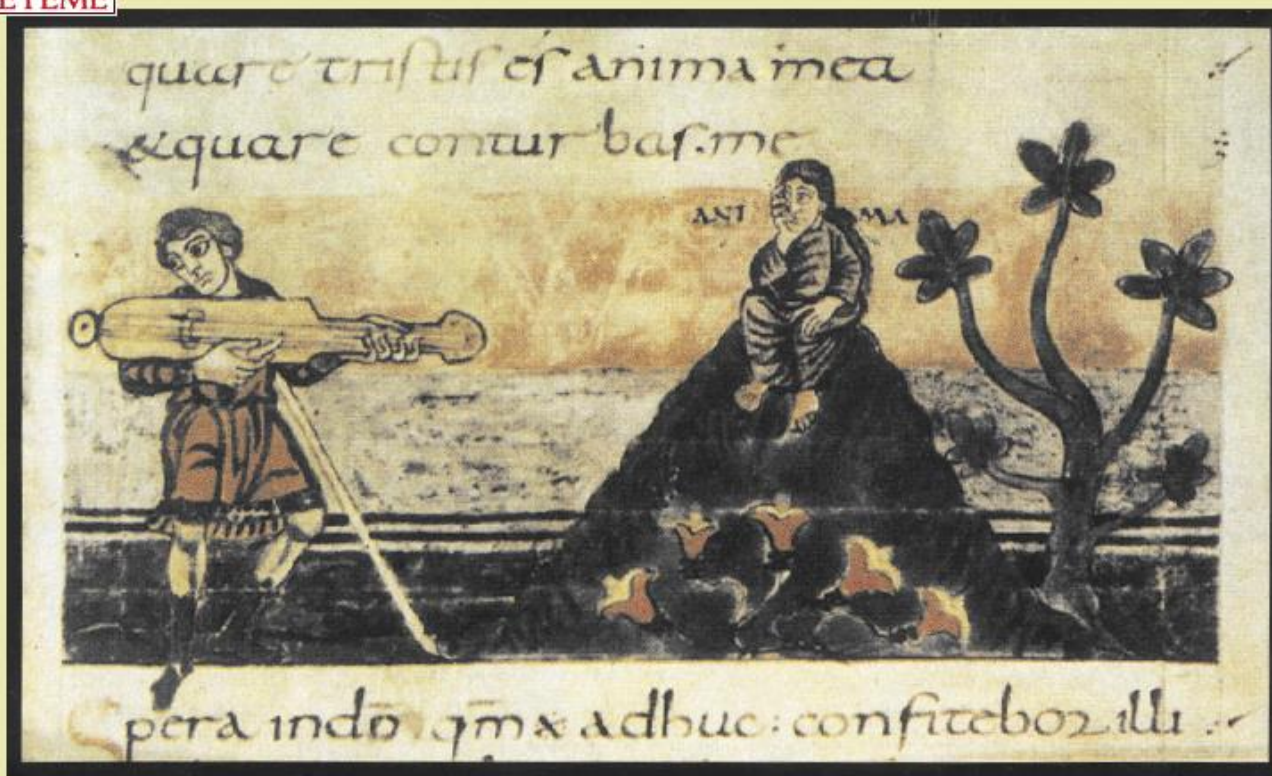 quare tristis es anima mea
&quare conturbas.me
ANI MA
Spera indō qm̄ adhuc: confitebor illi